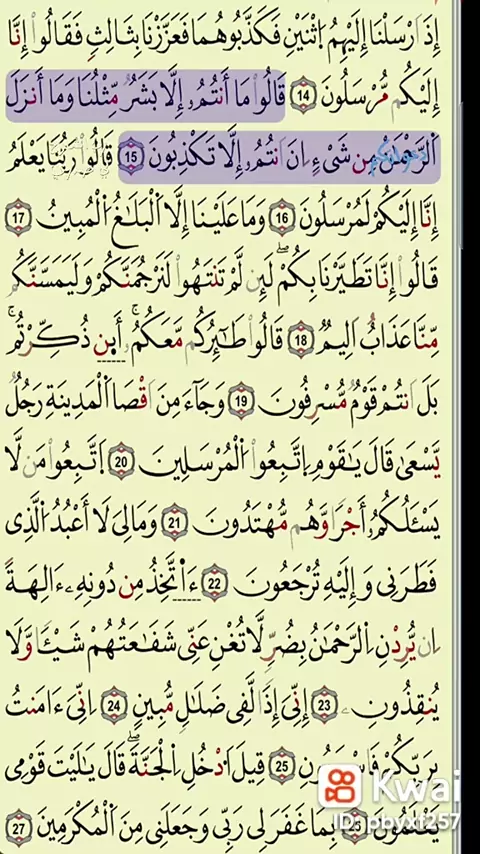 إِذَ ارْسَلْنَا إِلَيْهِمُ اثْنَيْنِ فَكَذَّبُوهُمَا فَعَزَّزْنَا بِثَالِثٍ فَقَالُوا إِنَّا
إِلَيْكُم مُّرْسَلُونَ 14 قَالُوا مَا أَنتُمُۥ إِلَّا بَشَرٌ مِّثْلُنَا وَمَا أَنزَلَ
اَلرَّحْمَٰنُ مِن شَىْءٍ اِنَ انتُمُۥ إِلَّا تَكْذِبُونَ 15 قَالُوا رَبُّنَا يَعْلَمُ
إِنَّا إِلَيْكُمْ لَمُرْسَلُونَ 16 وَمَا عَلَيْنَا إِلَّا اَلْبَلَٰغُ اُلْمُبِينُ 17
قَالُوا إِنَّا تَطَيَّرْنَا بِكُمْ لَئِن لَّمْ تَنتَهُوا لَنَرْجُمَنَّكُمْ وَلَيَمَسَّنَّكُم
مِّنَّا عَذَابٌ اَلِيمٌ 18 قَالُوا طَٰٓئِرُكُم مَّعَكُمُۥ أَىِٕن ذُكِّرْتُم
بَلَ انتُمْ قَوْمٌ مُّسْرِفُونَ 19 وَجَآءَ مِنَ اَقْصَا اَلْمَدِينَةِ رَجُلٌ
يَّسْعَىٰ قَالَ يَٰقَوْمِ اِتَّبِعُوا اُلْمُرْسَلِينَ 20 اَتَّبِعُوا مَن لَّا
يَسْـَٔلُكُمُۥ أَجْرًا وَّهُم مُّهْتَدُونَ 21 وَمَا لِىَ لَا أَعْبُدُ اُلَّذِى
فَطَرَنِى وَإِلَيْهِ تُرْجَعُونَ 22 ءَا۬تَّخِذُ مِن دُونِهِۦ ءَالِهَةً
اِن يُّرِدْنِ اِلرَّحْمَٰنُ بِضُرٍّ لَّا تُغْنِ عَنِّى شَفَٰعَتُهُمْ شَيْـًٔا وَّلَا
يُنقِذُونِ 23 إِنِّىَ إِذًا لَّفِى ضَلَٰلٍ مُّبِينٍ 24 اِنِّىَ ءَامَنتُ
بِرَبِّكُمْ فَاسْمَعُونِ 25 قِيلَ اَدْخُلِ اِلْجَنَّةَ قَالَ يَٰلَيْتَ قَوْمِى
يَعْلَمُونَ 26 بِمَا غَفَرَ لِى رَبِّى وَجَعَلَنِى مِنَ اَلْمُكْرَمِينَ 27
Kwai
ID: pbyxf257